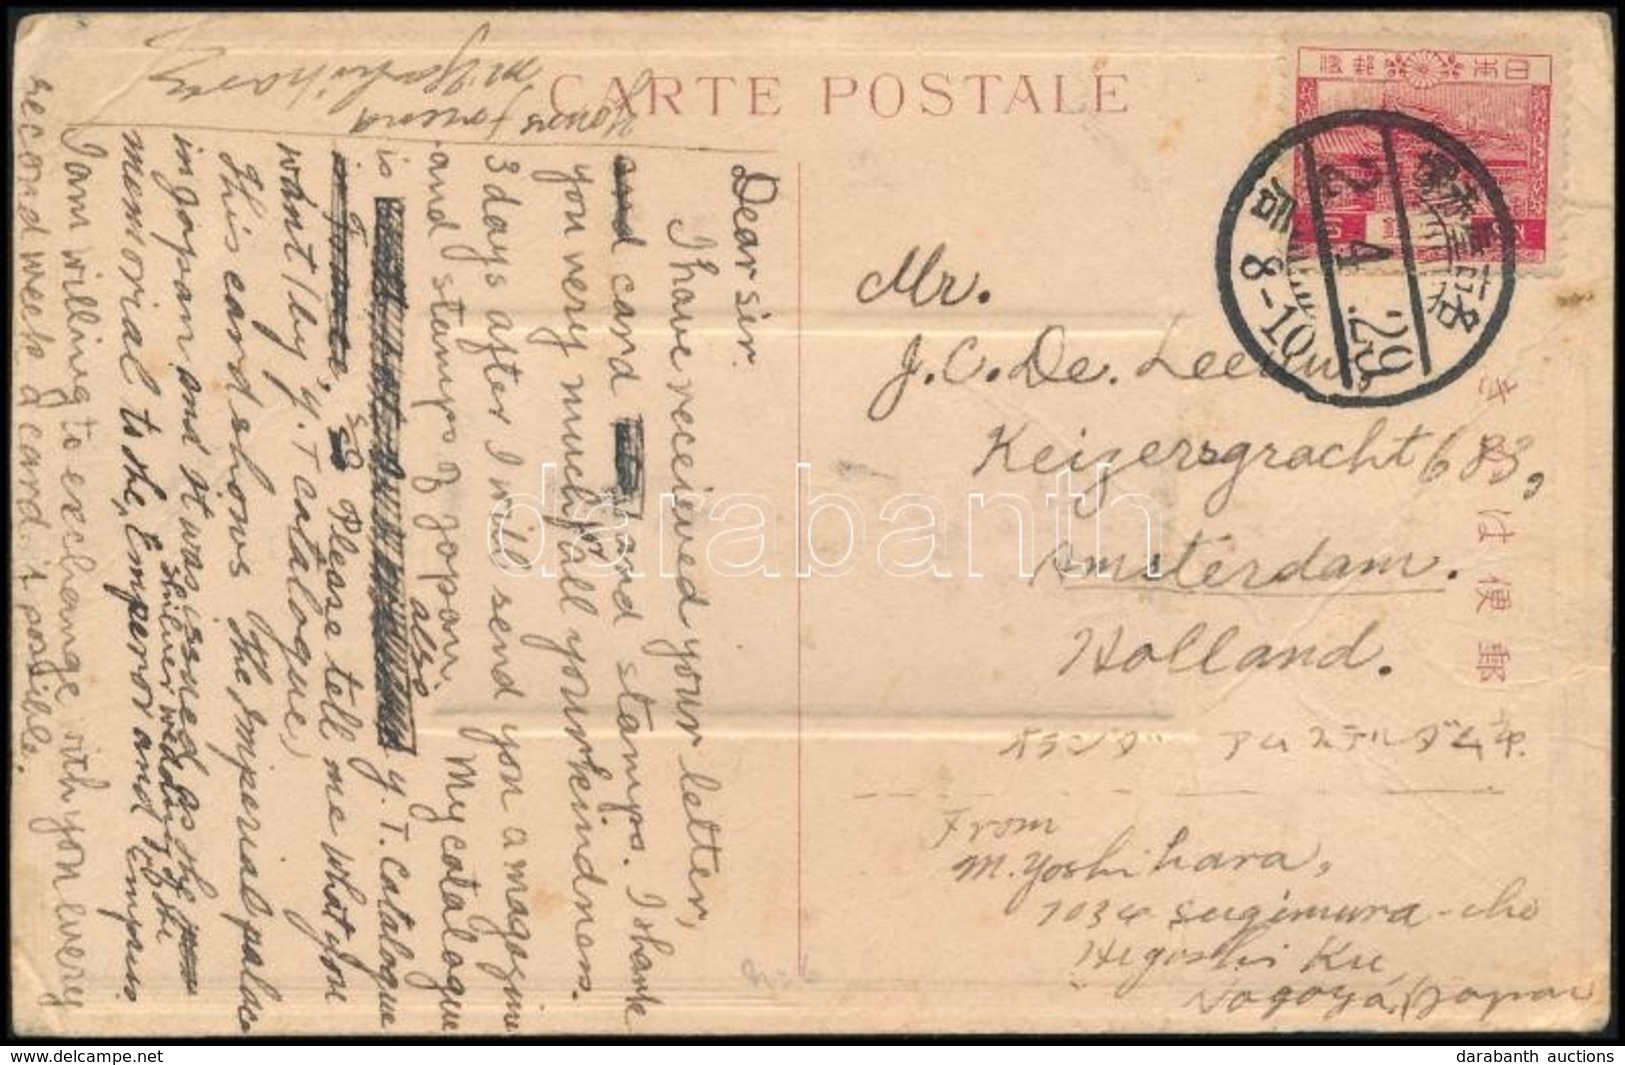 CARTE POSTALE
Dear sir.
I have received your letter,
card and stamps. I thank
you very much for all your kindness.
3 days after I will send you a magazine
and stamps of Japan. My catalogue
also
is y. T. Catalogue
so Please tell me what you
want (by y. T catalogue)
This card shows the Imperial palace
in Japan and it was issued as the
memorial to the Emperor and Empress
silver wedding of the
I am willing to exchange with you every
second week a card, if possible.
Yours friend
M. Yoshihara
日本郵便
SN
名古屋
29
4
2
8-10
Mr.
J. C. De. Leeuw
Keizersgracht 683,
Amsterdam.
Holland.
オランダ アムステルダム市
From
M. Yoshihara,
1034 Sugimura-cho
Higashi Ku,
Nagoya, (Japan
郵便はがき
darabanth
darabanth auctions